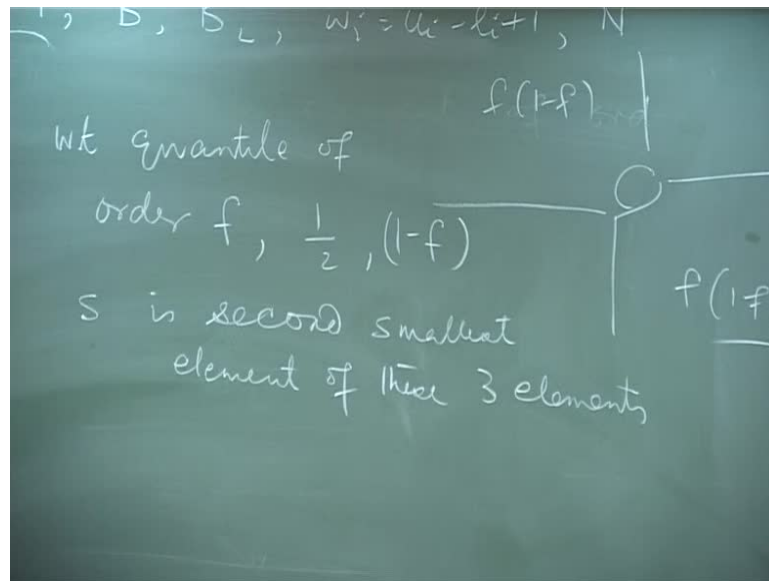 , D, D_L, w_i = u_i - l_i + 1, N
f(1-f)
wt quantile of
order f, 1/2, (1-f)
f(1-f
s is second smallest
element of these 3 elements